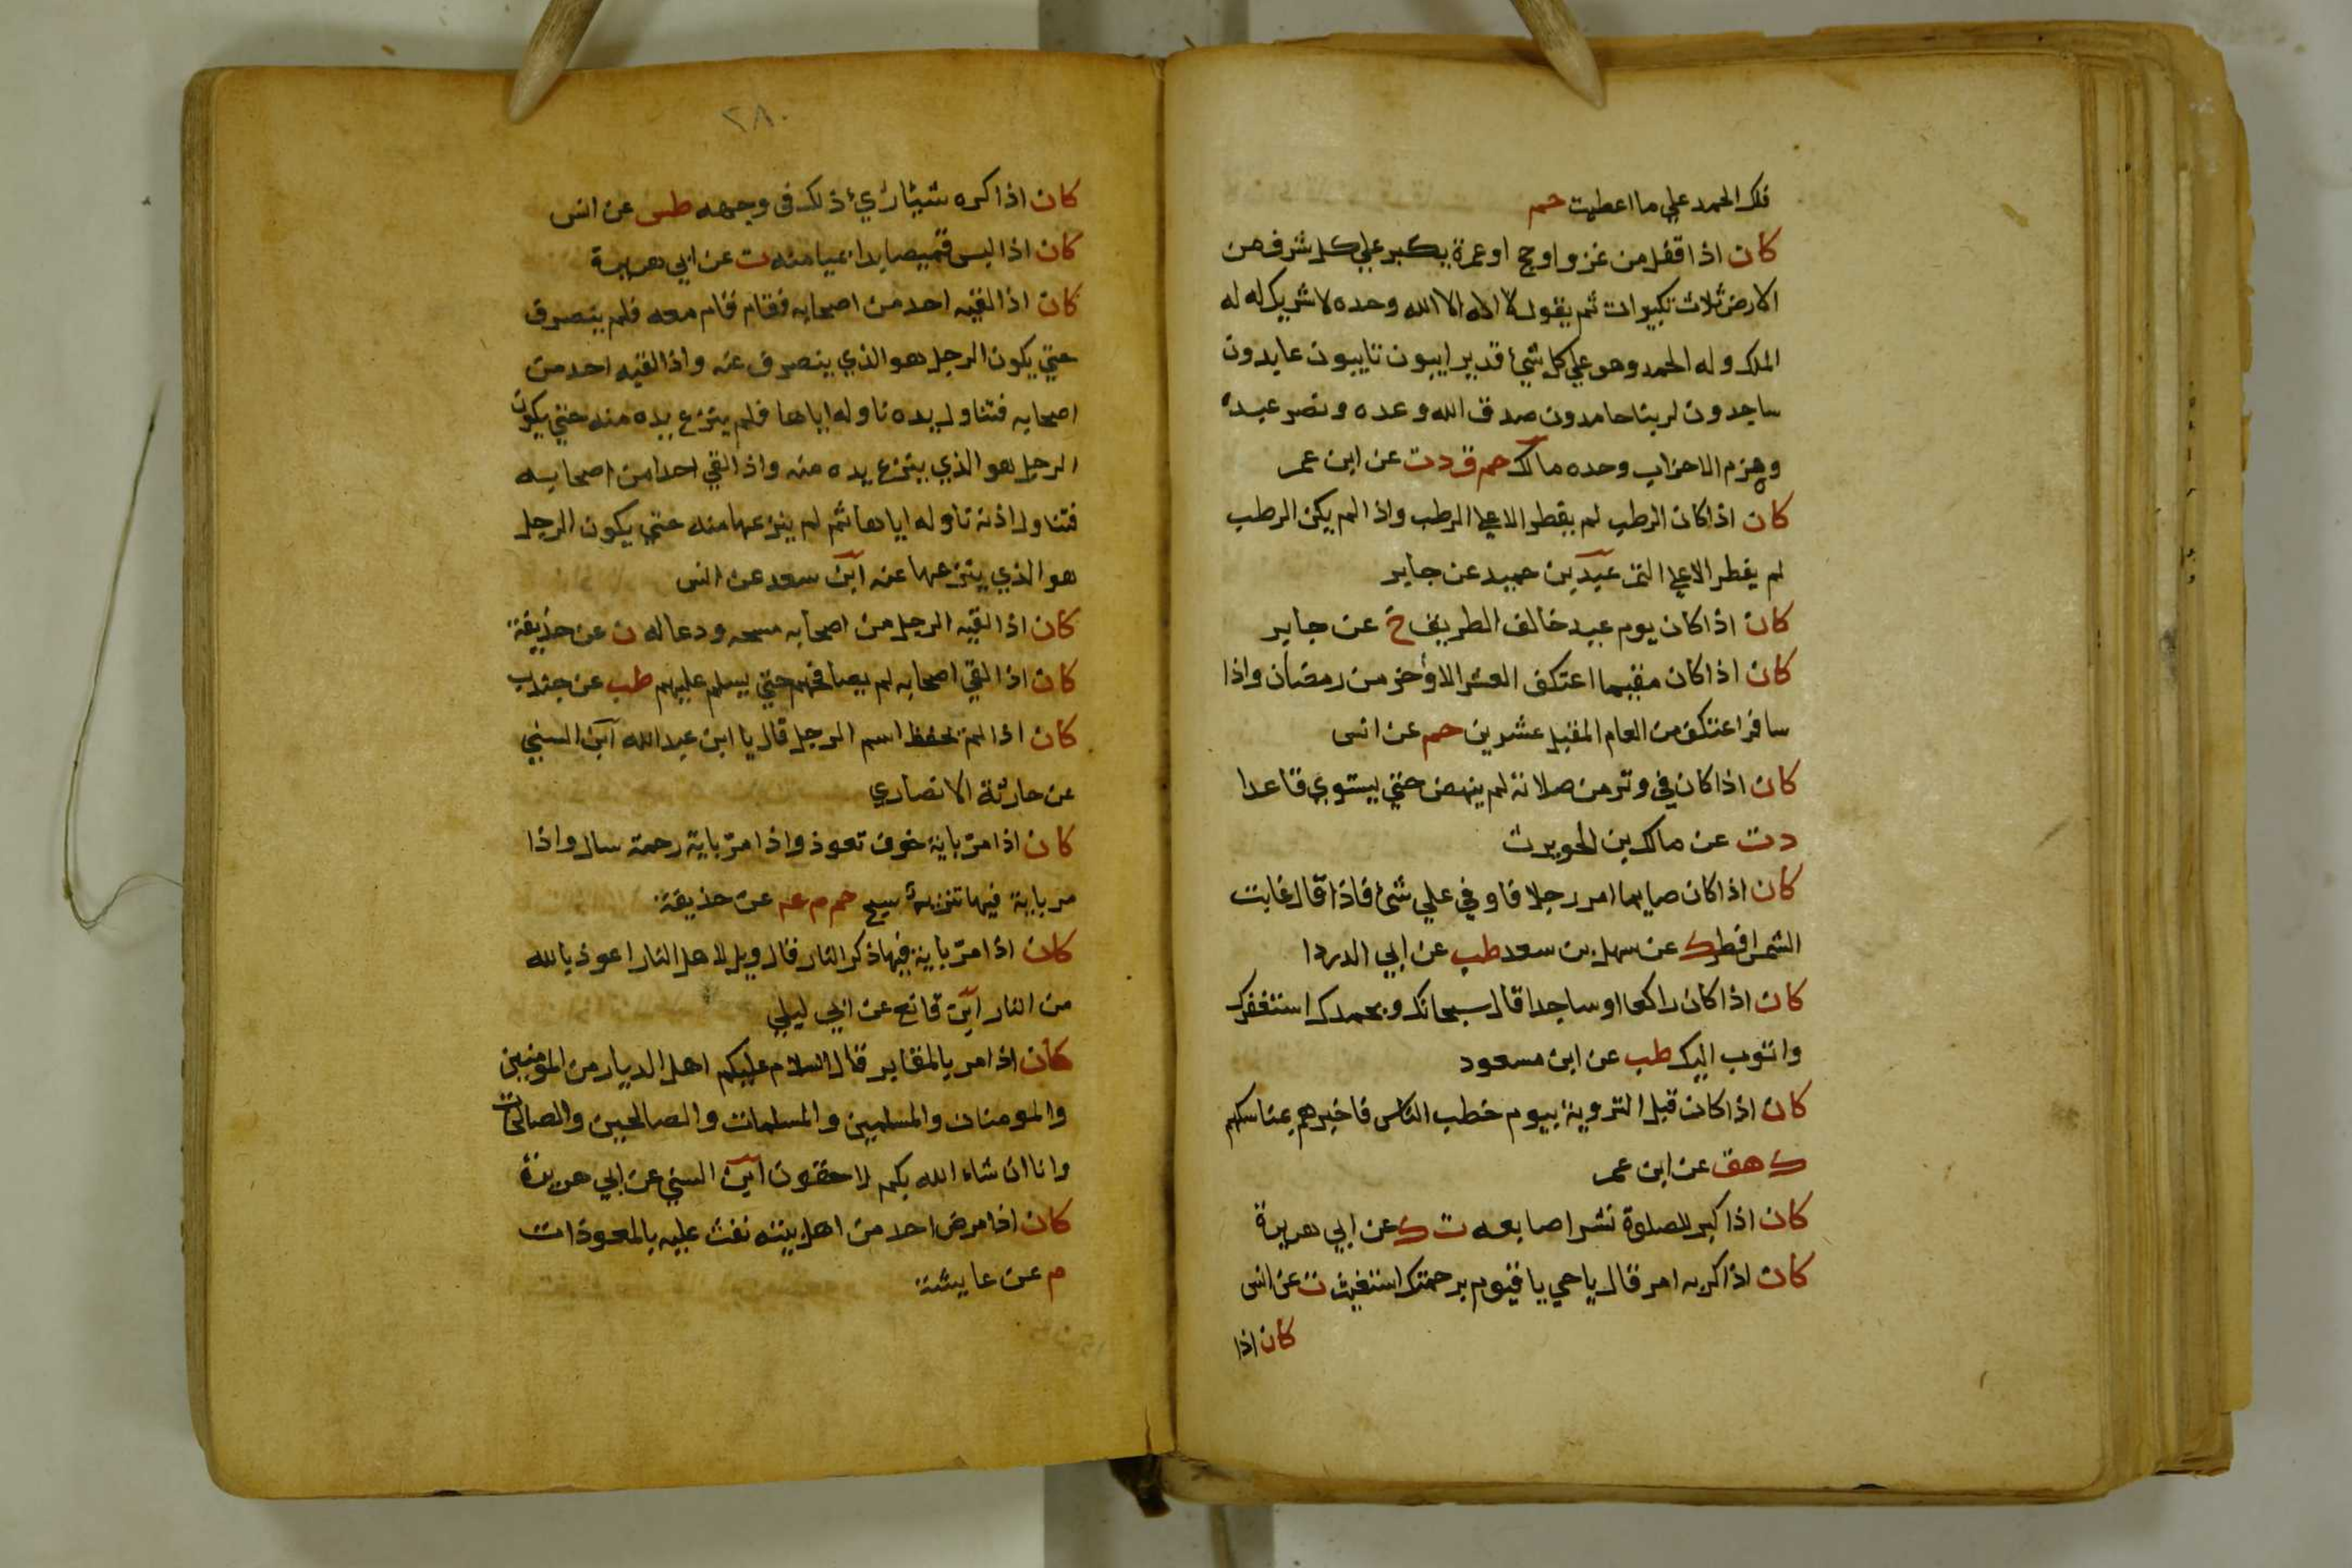 فلك الحمد علي ما اعطيت حم
كان اذا قفل من غزو او حج او عمرة يكبر علي كل شرف من
الارض ثلاث تكبيرات ثم يقول لا اله الا الله وحده لا شريك له له
الملك وله الحمد وهو علي كل شيء قدير ايبون تايبون عابدون
ساجدون لربنا حامدون صدق الله وعده ونصر عبده
وهزم الاحزاب وحده مالك حم ق د ت عن ابن عمر
كان اذا كان الرطب لم يفطر الا علي الرطب واذا لم يكن الرطب
لم يفطر الا علي التمر عبد بن حميد عن جابر
كان اذا كان يوم عيد خالف الطريق خ عن جابر
كان اذا كان مقيما اعتكف العشر الاواخر من رمضان واذا
سافر اعتكف من العام المقبل عشرين حم عن انس
كان اذا كان في وتر من صلاته لم ينهض حتي يستوي قاعدا
د ت عن مالك بن الحويرث
كان اذا كان صايما امر رجلا فاوفي علي شئ فاذا قال غابت
الشمس افطر ك عن سهل بن سعد طب عن ابي الدردا
كان اذا كان راكعا او ساجدا قال سبحانك وبحمدك استغفرك
واتوب اليك طب عن ابن مسعود
كان اذا كان قبل التروية بيوم خطب الناس فاخبرهم بمناسكهم
ك هق عن ابن عمر
كان اذا كبر للصلوة نشر اصابعه ت ك عن ابي هريرة
كان اذا كربه امر قال يا حي يا قيوم برحمتك استغيث ت عن انس
كان اذا
٢٨٠
كان اذا كره شيئا رئ ذلك في وجهه طس عن انس
كان اذا لبس قميصا بدا بميامنه ت عن ابي هريرة
كان اذا لقيه احد من اصحابه فقام قام معه فلم ينصرف
حتي يكون الرجل هو الذي ينصرف عنه واذا لقيه احد من
اصحابه فتناول يده ناوله اياها فلم ينزع يده منه حتي يكون
الرجل هو الذي ينزع يده منه واذا لقي احدا من اصحابه
فتناول اذنه ناوله اياها ثم لم ينزعها منه حتي يكون الرجل
هو الذي ينزعها عنه ابن سعد عن انس
كان اذا لقيه الرجل من اصحابه مسحه ودعا له ن عن حذيفة
كان اذا لقي اصحابه لم يصافحهم حتي يسلم عليهم طب عن جندب
كان اذا لم يحفظ اسم الرجل قال يا ابن عبد الله ابن السني
عن حارثة الانصاري
كان اذا مر باية خوف تعوذ واذا مر باية رحمة سال واذا
مر باية فيها تنزيه سبح حم م عه عن حذيفة
كان اذا مر باية فيها ذكر النار قال ويل لاهل النار اعوذ بالله
من النار ابن قانع عن ابي ليلي
كان اذا مر بالمقابر قال السلام عليكم اهل الديار من المومنين
والمومنات والمسلمين والمسلمات والصالحين والصالحات
وانا ان شاء الله بكم لاحقون ابن السني عن ابي هريرة
كان اذا مرض احد من اهل بيته نفث عليه بالمعوذات
م عن عايشة